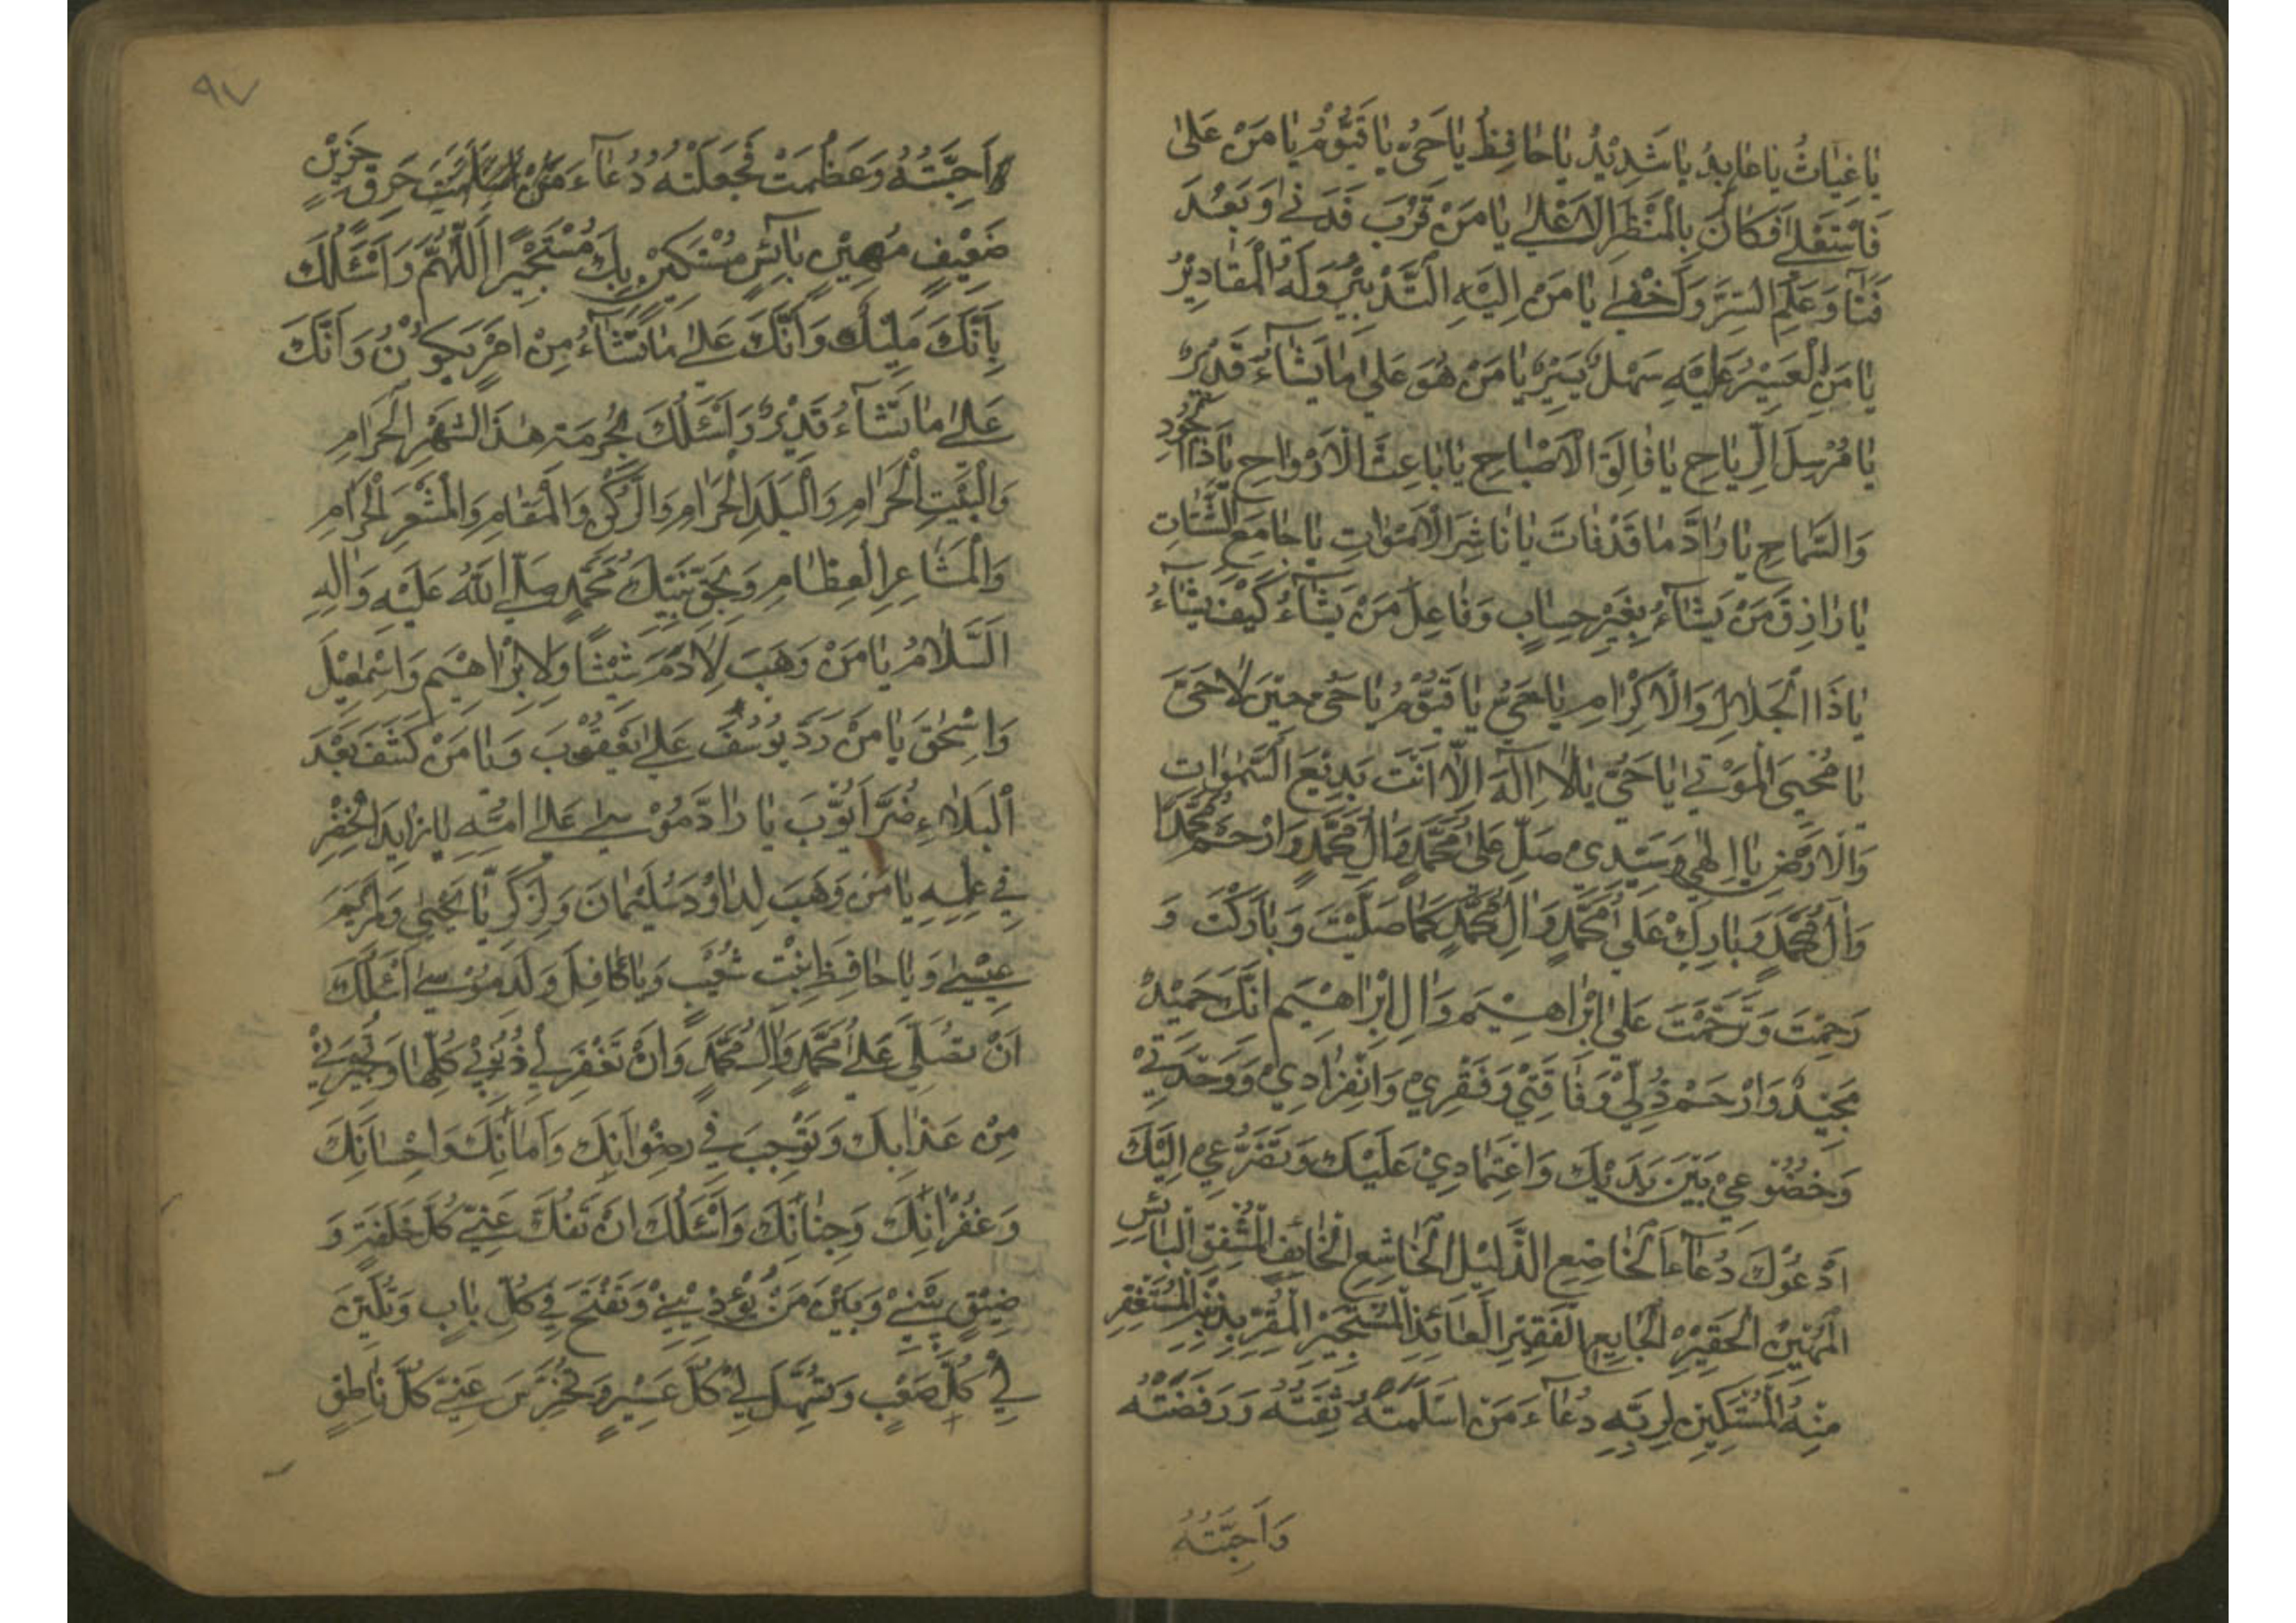 يَا غِيَاثُ يَا عَابِدُ يَا شَدِيْدُ يَا حَافِظُ يَا حَيُّ يَا قَيُّوْمُ يَا مَنْ عَلىٰ
فَاسْتَعْلىٰ فَكَانَ بِالْمَنْظَرِ الْاَعْلىٰ يَا مَنْ قَرُبَ فَدَنىٰ وَ بَعُدَ
فَنَأَ وَ عَلِمَ السِّرَّ وَ اَخْفىٰ يَا مَنْ اِلَيْهِ التَّدْبِيْرُ وَلَهُ الْمَقَادِيْرُ
يَا مَنِ الْعَسِيْرُ عَلَيْهِ سَهْلٌ يَسِيْرٌ يَا مَنْ هُوَ عَلىٰ مَا يَشَآءُ قَدِيْرٌ
يَا مُرْسِلَ الرِّيَاحِ يَا فَالِقَ الْاَصْبَاحِ يَا بَاعِثَ الْاَرْوَاحِ يَا ذَا الْجُوْدِ
وَالسَّمَاحِ يَا رَادَّ مَا قَدْ فَاتَ يَا نَاشِرَ الْاَمْوَاتِ يَا جَامِعَ الشَّتَاتِ
يَا رَازِقَ مَنْ يَشَآءُ بِغَيْرِ حِسَابٍ وَ فَاعِلَ مَنْ يَشَآءُ كَيْفَ يَشَآءُ
يَا ذَا الْجَلَالِ وَالْاِكْرَامِ يَا حَيُّ يَا قَيُّوْمُ يَا حَيُّ حِيْنَ لَا حَيَّ
يَا مُحْيِيَ الْمَوْتىٰ يَا حَيُّ يَا لَا اِلٰهَ اِلَّا اَنْتَ بَدِيْعَ السَّمٰوَاتِ
وَالْاَرْضِ يَا اِلٰهِيْ وَسَيِّدِيْ صَلِّ عَلىٰ مُحَمَّدٍ وَ اٰلِ مُحَمَّدٍ وَارْحَمْ مُحَمَّدًا
وَ اٰلَ مُحَمَّدٍ وَ بَارِكْ عَلىٰ مُحَمَّدٍ وَ اٰلِ مُحَمَّدٍ كَمَا صَلَّيْتَ وَ بَارَكْتَ وَ
رَحِمْتَ وَ تَرَحَّمْتَ عَلىٰ اِبْرَاهِيْمَ وَ اٰلِ اِبْرَاهِيْمَ اِنَّكَ حَمِيْدٌ
مَجِيْدٌ وَارْحَمْ ذُلِّيْ وَ فَاقَتِيْ وَ فَقْرِيْ وَانْفِرَادِيْ وَ وَحْدَتِيْ
وَ خُضُوْعِيْ بَيْنَ يَدَيْكَ وَاعْتِمَادِيْ عَلَيْكَ وَ تَضَرُّعِيْ اِلَيْكَ
اَدْعُوْكَ دُعَآءَ الْخَاضِعِ الذَّلِيْلِ الْخَاشِعِ الْخَائِفِ الْمُشْفِقِ الْبَائِسِ
الْمَهِيْنِ الْحَقِيْرِ الْجَايِعِ الْفَقِيْرِ الْعَائِذِ الْمُسْتَجِيْرِ الْمُقِرِّ بِذَنْبِهِ الْمُسْتَغْفِرِ
مِنْهُ الْمُسْتَكِيْنِ لِرَبِّهِ دُعَآءَ مَنْ اَسْلَمَتْهُ ثِقَتُهُ وَ رَفَضَتْهُ
وَ اَحِبَّتُهُ
٩٧
اَحِبَّتُهُ وَ عَظُمَتْ فَجِعَتُهُ دُعَآءَ حَرِقٍ حَزِيْنٍ
ضَعِيْفٍ مُهِيْنٍ بَآئِسٍ مُسْتَكِيْنٍ بِكَ مُسْتَجِيْرًا اَللّٰهُمَّ وَ اَسْئَلُكَ
بِاَنَّكَ مَلِيْكٌ وَ اَنَّكَ عَلىٰ مَا تَشَآءُ مِنْ اَمْرٍ يَكُوْنُ وَ اَنَّكَ
عَلىٰ مَا تَشَآءُ قَدِيْرٌ وَ اَسْئَلُكَ بِحُرْمَةِ هٰذَا الشَّهْرِ الْحَرَامِ
وَالْبَيْتِ الْحَرَامِ وَالْبَلَدِ الْحَرَامِ وَالرُّكْنِ وَالْمَقَامِ وَالْمَشْعَرِ الْحَرَامِ
وَالْمَشَاعِرِ الْعِظَامِ وَ بِحَقِّ نَبِيِّكَ مُحَمَّدٍ صَلَّى اللهُ عَلَيْهِ وَ اٰلِهِ
السَّلَامُ يَا مَنْ وَهَبَ لِاٰدَمَ شِيْثًا وَ لِاِبْرَاهِيْمَ وَ اِسْمٰعِيْلَ
وَ اِسْحٰقَ يَا مَنْ رَدَّ يُوْسُفَ عَلىٰ يَعْقُوْبَ وَ يَا مَنْ كَشَفَ بَعْدَ
الْبَلَاءِ ضُرَّ اَيُّوْبَ يَا رَادَّ مُوْسىٰ عَلىٰ اُمِّهِ يَا زَايِدَ الْخِضْرِ
فِيْ عِلْمِهِ يَا مَنْ وَهَبَ لِدَاوُدَ سُلَيْمَانَ وَ لِزَكَرِيَّا يَحْيىٰ وَ لِمَرْيَمَ
عِيْسىٰ وَ يَا حَافِظَ بِنْتِ شُعَيْبٍ وَ يَا كَافِلَ وَلَدِ مُوْسىٰ اَسْئَلُكَ
اَنْ تُصَلِّيَ عَلىٰ مُحَمَّدٍ وَ اٰلِ مُحَمَّدٍ وَ اَنْ تَغْفِرَ لِيْ ذُنُوْبِيْ كُلَّهَا وَ تُجِيْرَنِيْ
مِنْ عَذَابِكَ وَ تُوْجِبَ لِيْ رِضْوَانَكَ وَ اَمَانَكَ وَ اِحْسَانَكَ
وَ غُفْرَانَكَ وَ جِنَانَكَ وَ اَسْئَلُكَ اَنْ تَفُكَّ عَنِّيْ كُلَّ حَلْقَةٍ وَ
ضِيْقٍ بَيْنِيْ وَ بَيْنَ مَنْ يُؤْذِيْنِيْ وَ تَفْتَحَ لِيْ كُلَّ بَابٍ وَ تُلَيِّنَ
لِيْ كُلَّ صَعْبٍ وَ تُسَهِّلَ لِيْ كُلَّ عَسِيْرٍ وَ تُخْرِسَ عَنِّيْ كُلَّ نَاطِقٍ